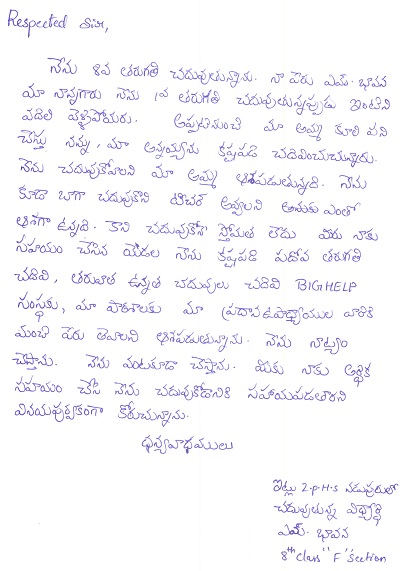 Respected Sir,
నేను 8వ తరగతి చదువుతున్నాను. నా పేరు ఎమ్. భావన
మా నాన్నగారు నేను 1వ తరగతి చదువుతున్నప్పుడు ఇంటిని
వదిలి వెళ్ళిపోయారు. అప్పటినుంచి మా అమ్మ కూలి పని
చేస్తు నన్ను, మా అన్నయ్యను కష్టపడి చదివించుచున్నారు.
నేను చదువుకోవాలని మా అమ్మ ఆశపడుతున్నది. నేను
కూడా బాగా చదువుకొని టీచర్ అవ్వాలని ఎంతో
ఆశగా ఉన్నది. కాని చదువుకోనే స్తోమత లేదు మీరు నాకు
సహాయం చేసిన యెడల నేను కష్టపడి పదోవ తరగతి
చదివి, తరువాత ఉన్నత చదువులు చదివి BIGHELP
సంస్థకు, మా పాఠశాలకు మా ప్రధానఉపాధ్యాయుల వారికి
మంచి పేరు తేవాలని ఆశపడుతున్నాను. నేను నాట్యం
చేస్తాను. నేను వంటకూడా చేస్తాను. మీరు నాకు ఆర్థిక
సహాయం చేసి నేను చదువుకోడానికి సహాయపడతారని
వినయపూర్వకంగా కోరుచున్నాను.
ధన్యవాధములు
ఇట్లు Z.P.H.S నడుపూరులో
చదువుతున్న విద్యార్థి
ఎమ్. భావన
8th class "F" section